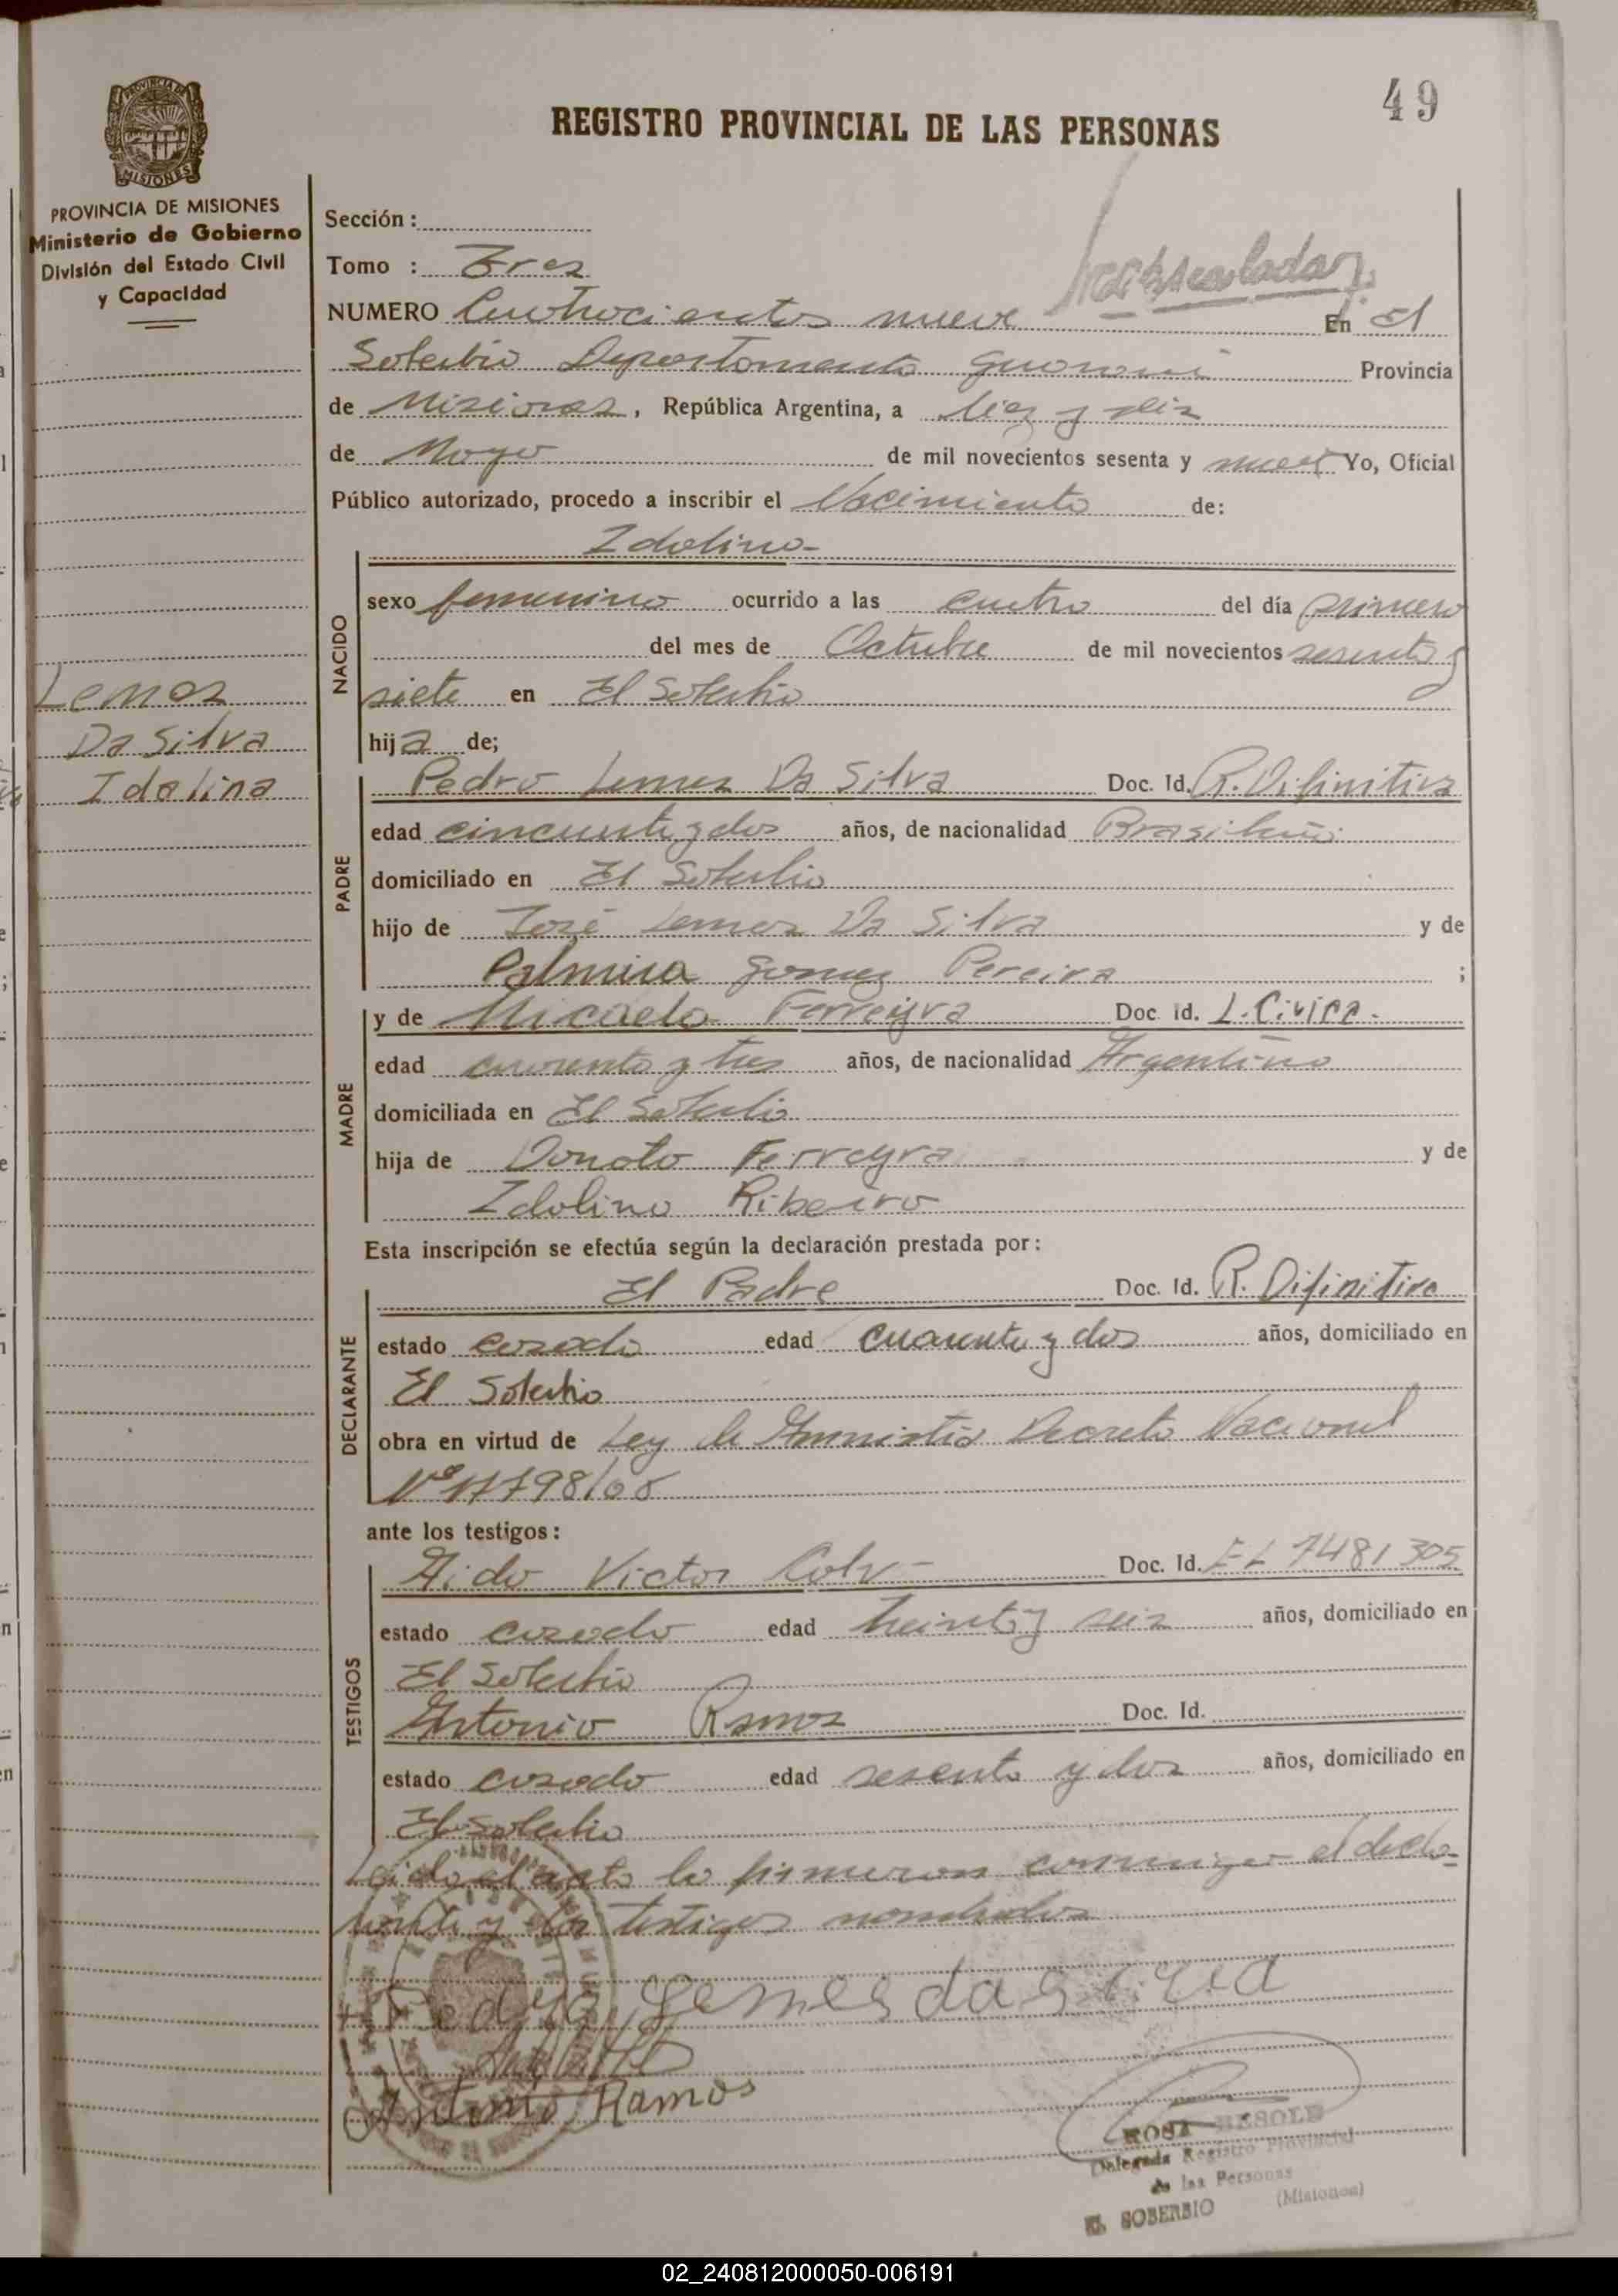 49
REGISTRO PROVINCIAL DE LAS PERSONAS
PROVINCIA DE MISIONES
MISIONES
PROVINCIA DE MISIONES
Ministerio de Gobierno
División del Estado Civil
y Capacidad
Lemos
Da Silva
Idolina
Sección :
Tomo : Tres
NUMERO Cuatrocientos nueve En El
Soberbio Departamento Guarani Provincia
de Misiones, República Argentina, a diez y seis
de Mayo de mil novecientos sesenta y nueve Yo, Oficial
Público autorizado, procedo a inscribir el Nacimiento de:
Idolina-
NACIDO
sexo femenino ocurrido a las cuatro del día primero
del mes de Octubre de mil novecientos sesenta y
siete en El Soberbio
hija de;
PADRE
Pedro Lemes Da Silva Doc. Id. R. Difinitiva
edad cincuenta y dos años, de nacionalidad Brasileña
domiciliado en El Soberbio
hijo de José Lemes Da Silva y de
Palmira Gomez Pereira ;
MADRE
y de Micaela Ferreyra Doc. Id. L. Civica.
edad cuarenta y tres años, de nacionalidad Argentina
domiciliada en El Soberbio
hija de Donato Ferreyra y de
Idolina Ribeiro
Esta inscripción se efectúa según la declaración prestada por:
DECLARANTE
El Padre Doc. Id. R. Difinitiva
estado casado edad cuarenta y dos años, domiciliado en
El Soberbio
obra en virtud de Ley de Amnistia Decreto Nacional
Nº 17798/68
ante los testigos:
TESTIGOS
Aido Victor Doc. Id. 7481305
estado casado edad treinta y seis años, domiciliado en
El Soberbio
Antonio Ramos Doc. Id.
estado casado edad sesenta y dos años, domiciliado en
El Soberbio
Leido el acta la firmaron conmigo el decla-
rante y los testigos nombrados
Pedro Lemes da Silva
Antonio Ramos
ROSA
Delegada Registro Provincial
de las Personas
EL SOBERBIO (Misiones)
02_240812000050-006191